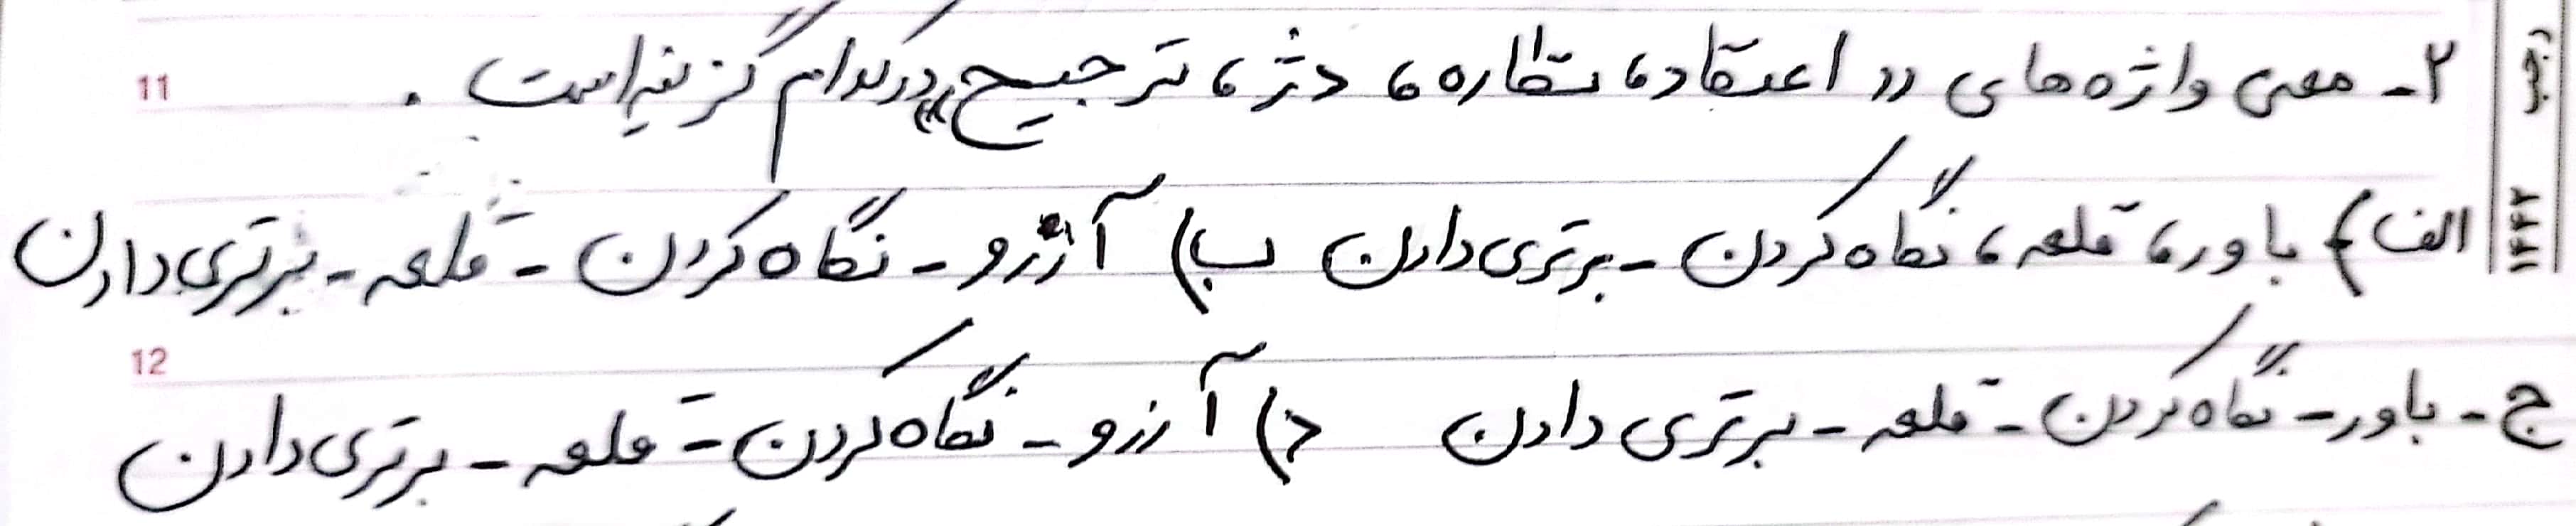 ۲- معنی واژه های «اعتقاد، نظاره، دژ، ترجیح» در کدام گزینه است.
11
الف) باور، قلعه، نگاه کردن - برتری دادن ب) آرزو - نگاه کردن - قلعه - برتری دادن
12
ج - باور - نگاه کردن - قلعه - برتری دادن د) آرزو - نگاه کردن - قلعه - برتری دادن
۱۴۴۲